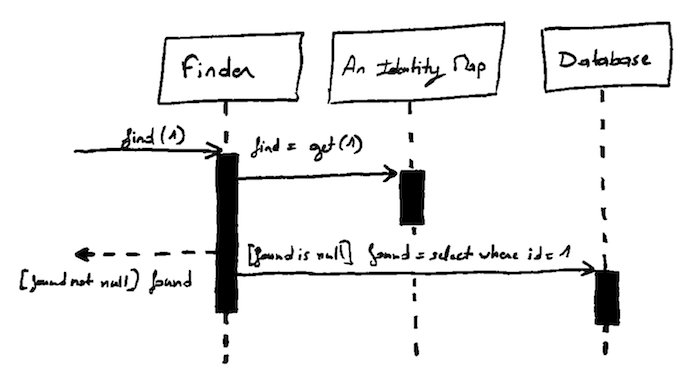 Finder
An Identity Map
Database
find(1)
find = get(1)
[found is null] found = select where id = 1
[found not null] found